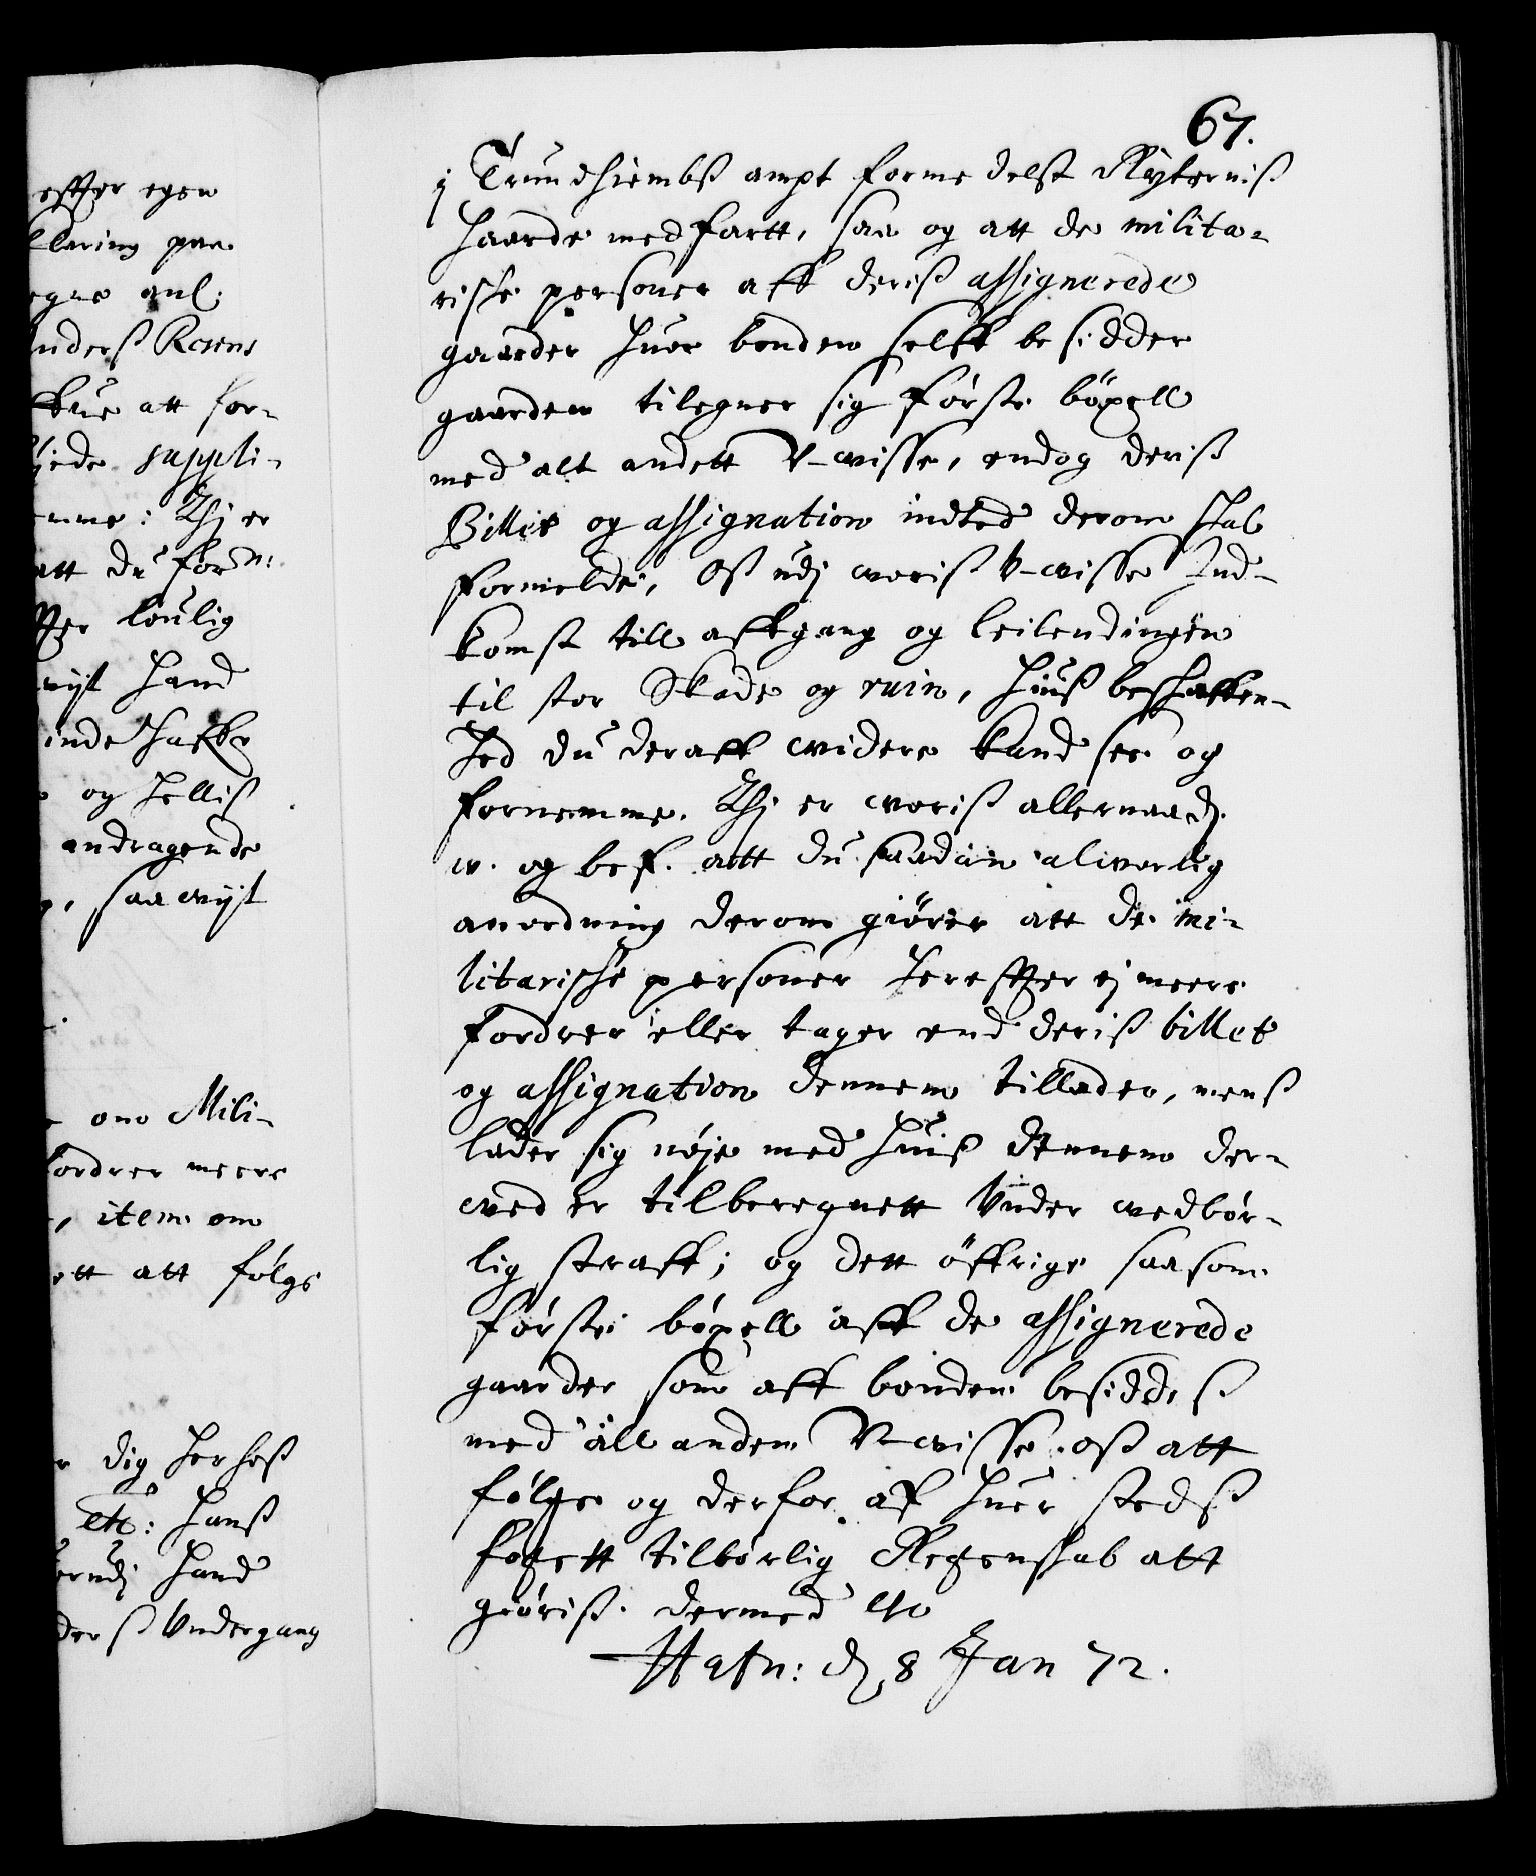 effter egen
klaring paa
egne anl:
anderß Kosens
kue att for-
øjede suppli-
emme: Thj er
att du form:
effter loulig
wijt hand
inde haffr
og hellis
andragende
, saa wijt
om Mili-
fordrer meere
, item om
ett att følge
dig herhoß
etc: hanß
hand
derß Undergang
67.
j Trundhiembß ampt formedelst Rÿterniß
haarde medfartt, saa og att de milita-
riske personer aff deriß assignerede
gaarder huor bonden selff besidder
gaarden tilegner sig første böxell
med alt andett V-wisse, endog deriß
Billet og assignation indted derom skal
formelde, Oß udj woriß V-wisse Ind-
komst till affgang og leilendingen
til stor Skade og ruin, huiß beskaffen-
hed du deraff widere kand see og
fornemme. Thj er woriß allernaad.
w. og bef. att du saadan alworlig
anordning derom giører att de mi-
litariske personer hereffter ej meere
fordrer eller tager end deriß billet
og assignation dennem tillader, menß
lader sig nøje med huiß dennem der-
wed er tilberegnett Vnder wedbør-
lig straff; og dett öffrige saasom
første böxell aff de assignerede
gaarder som aff bonden besiddeß
med all anden V-wisse. oß att
følge og derfor af huer stedß
fogett tilbørlig Regenskab att
giøriß. dermed etc
Hafn: d. 8 Jan 72.